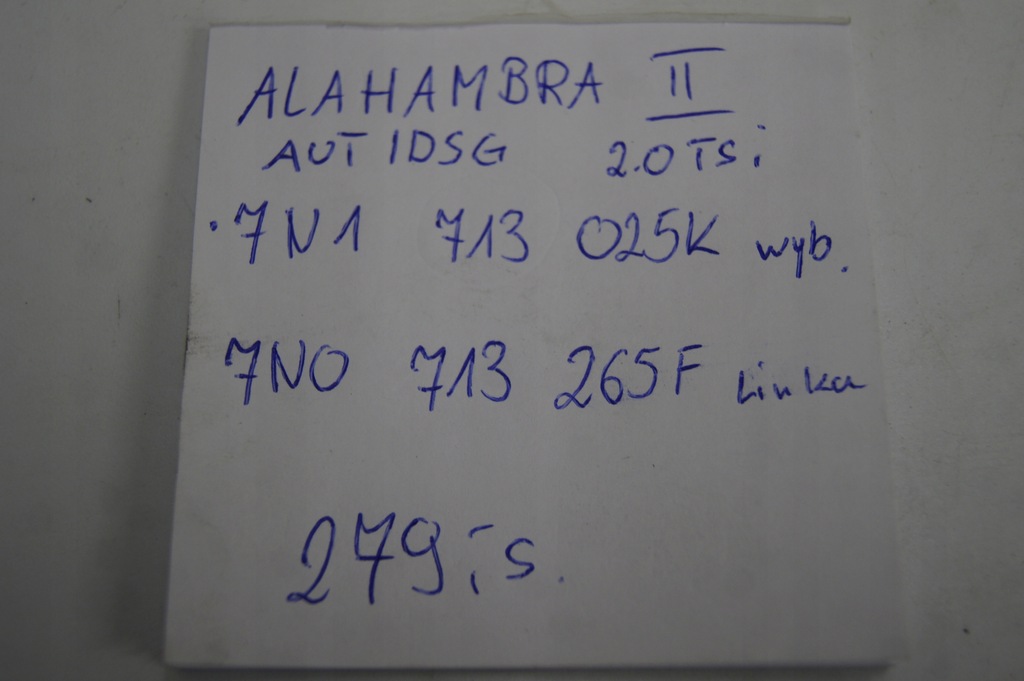 ALAHAMBRA II
AUT IDSG 2.0 TSi
7N1 713 025K wyb.
7N0 713 265F Linka
279,- s.